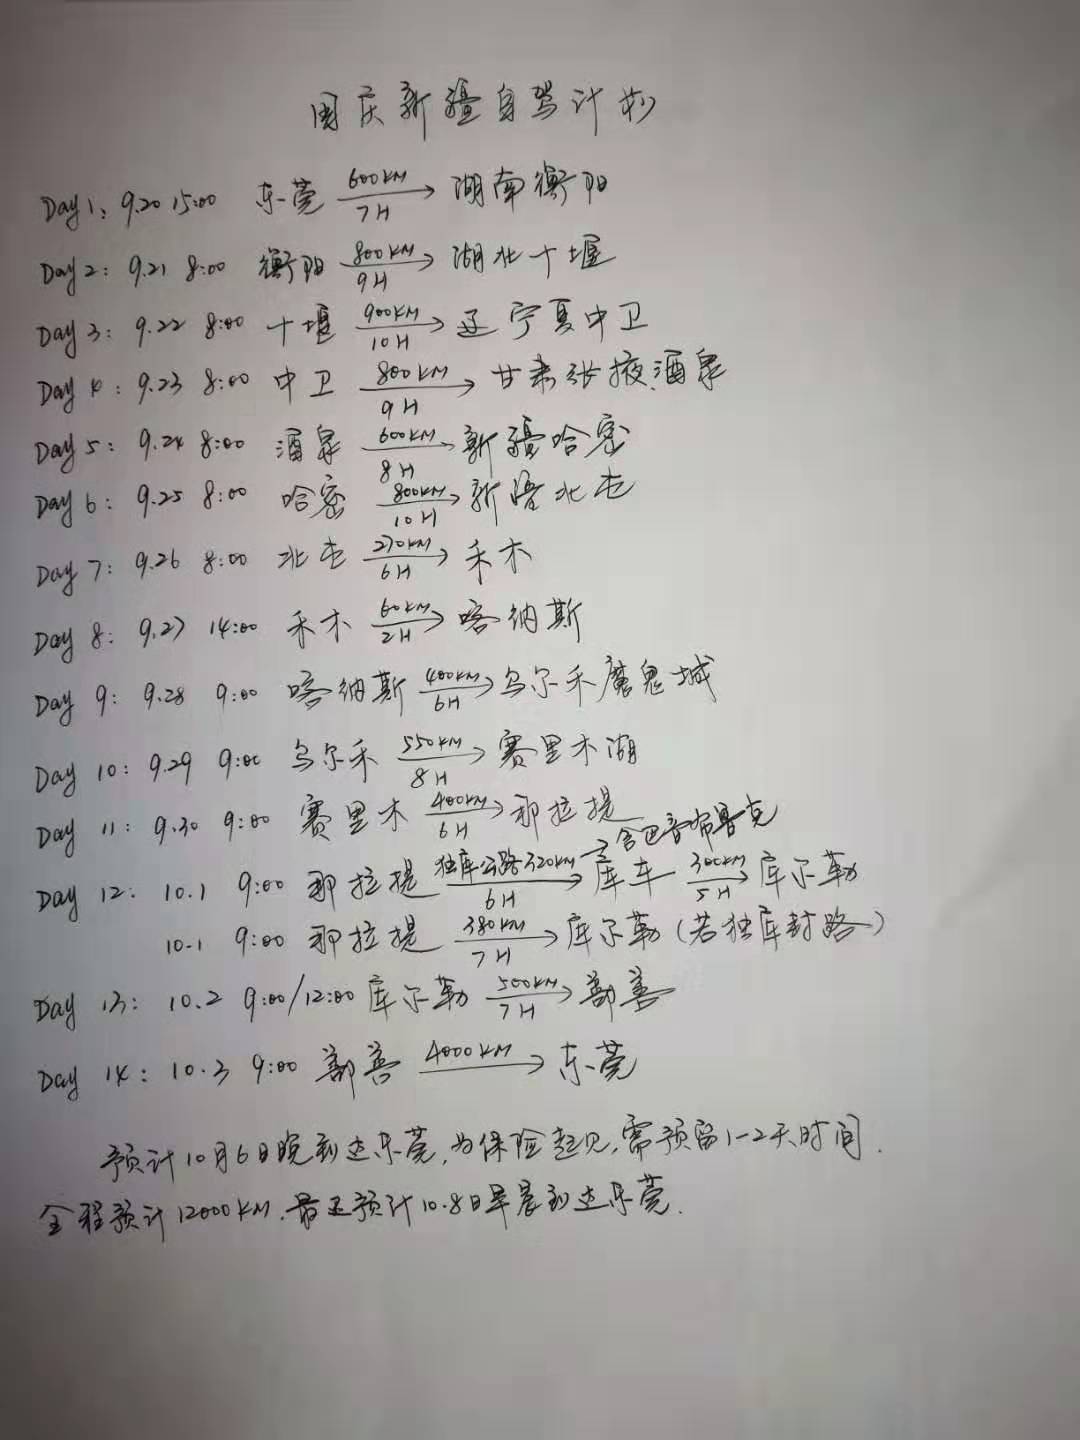 国庆新疆自驾计划
Day 1: 9.20 15:00 东莞 600KM 7H → 湖南衡阳
Day 2: 9.21 8:00 衡阳 800KM 9H → 湖北十堰
Day 3: 9.22 8:00 十堰 900KM 10H → 宁夏中卫
Day 4: 9.23 8:00 中卫 800KM 9H → 甘肃张掖酒泉
Day 5: 9.24 8:00 酒泉 600KM 8H → 新疆哈密
Day 6: 9.25 8:00 哈密 800KM 10H → 新疆北屯
Day 7: 9.26 8:00 北屯 270KM 6H → 禾木
Day 8: 9.27 14:00 禾木 60KM 2H → 喀纳斯
Day 9: 9.28 9:00 喀纳斯 400KM 6H → 乌尔禾魔鬼城
Day 10: 9.29 9:00 乌尔禾 550KM 8H → 赛里木湖
Day 11: 9.30 9:00 赛里木 400KM 6H → 那拉提
→含巴音布鲁克
Day 12: 10.1 9:00 那拉提 独库公路320KM 6H → 库车 300KM 5H → 库尔勒
10.1 9:00 那拉提 380KM 7H → 库尔勒(若独库封路)
Day 13: 10.2 9:00/12:00 库尔勒 500KM 7H → 鄯善
Day 14: 10.3 9:00 鄯善 4000KM → 东莞
预计10月6日晚到达东莞,为保险起见,需预留1-2天时间.
全程预计12000KM.最迟预计10.8日早晨到达东莞.